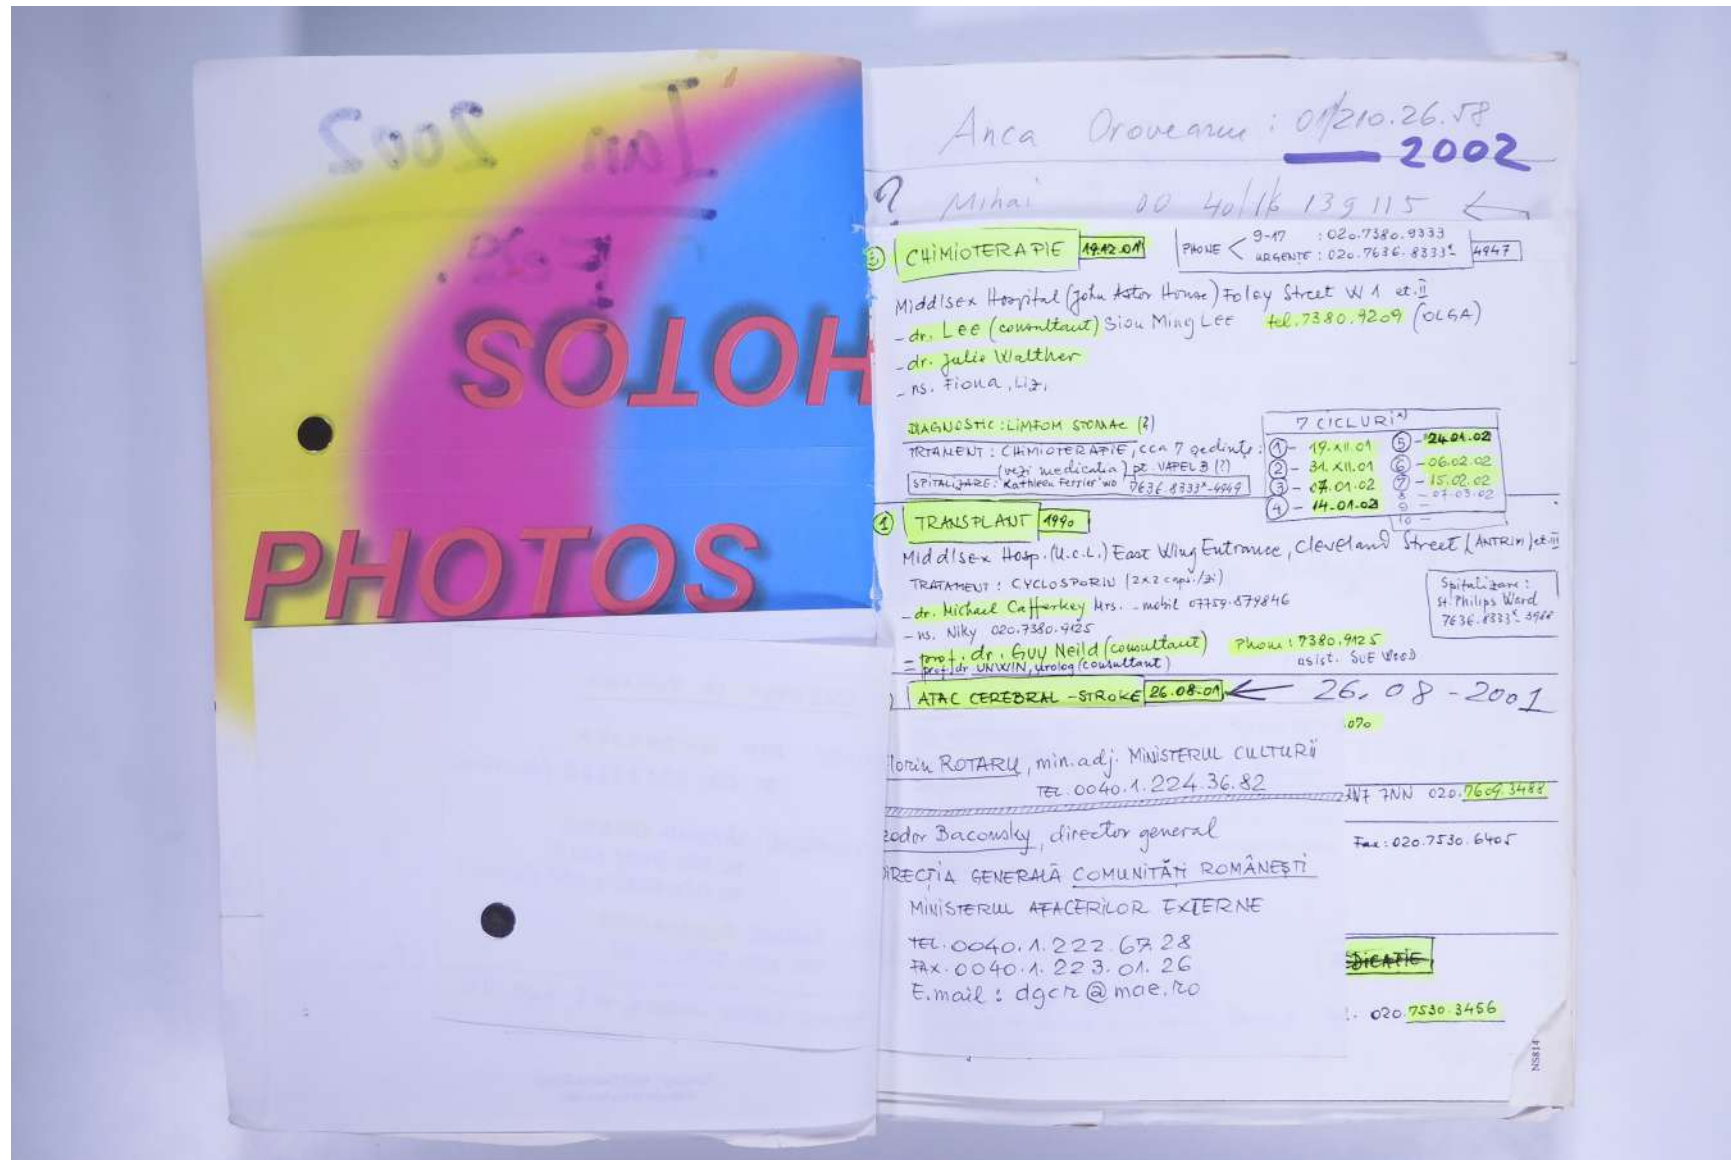 Ian 2002
Feb.
PHOTOS
PHOTOS
Anca Oroveanu : 01/210.26.58
2002
? Mihai 00 40/16 139 115
CHIMIOTERAPIE 19.12.01
PHONE < 9-17 : 020.7380.9333
URGENȚE : 020.7636.8333x 4947
Middlsex Hospital (John Astor House) Foley Street W1 et. II
- dr. Lee (consultant) Siou Ming Lee tel. 7380.9209 (OLGA)
- dr. Julie Walther
- ns. Fiona, Liz,
DIAGNOSTIC : LIMFOM STOMAC (?)
TRTAMENT : CHIMIOTERAPIE, cca 7 ședințe :
(vezi medicatia) pt. VAPEL B (?)
SPITALIZARE : Kathleen Ferrier wo 7636.8333x-4949
7 CICLURI x)
1 - 19.XII.01
2 - 31.XII.01
3 - 07.01.02
4 - 14.01.02
5 - 24.01.02
6 - 06.02.02
7 - 15.02.02
8 - 07-03-02
9 -
10 -
1 TRANSPLANT 1990
Middlsex Hosp. (U.C.L.) East Wing Entrance, Cleveland Street (ANTRIM) et. III
TRATAMENT : CYCLOSPORIN (2x2 caps./zi)
- dr. Michael Cafferkey Mrs. - mobil 07759.879846
- ns. Niky 020.7380.9125
= prof. dr. Guy Neild (consultant) Phone : 7380.9125
= prof. dr UNWIN, urolog (consultant) asist. SUE WOOD
Spitalizare :
St. Philips Ward
7636.8333x-3988
) ATAC CEREBRAL - STROKE 26.08.01 ← 26.08-2001
070
lorin ROTARU, min. adj. MINISTERUL CULTURII
TEL. 0040.1.224.36.82
7NN 020.7609.3488
eodor Baconsky, director general
Fax : 020.7530.6405
IRECȚIA GENERALĂ COMUNITĂȚI ROMÂNEȘTI
MINISTERUL AFACERILOR EXTERNE
TEL. 0040.1.222.67.28
FAX. 0040.1.223.01.26
E.mail : dgcr@mae.ro
DICATIE
020.7530.3456
NS814